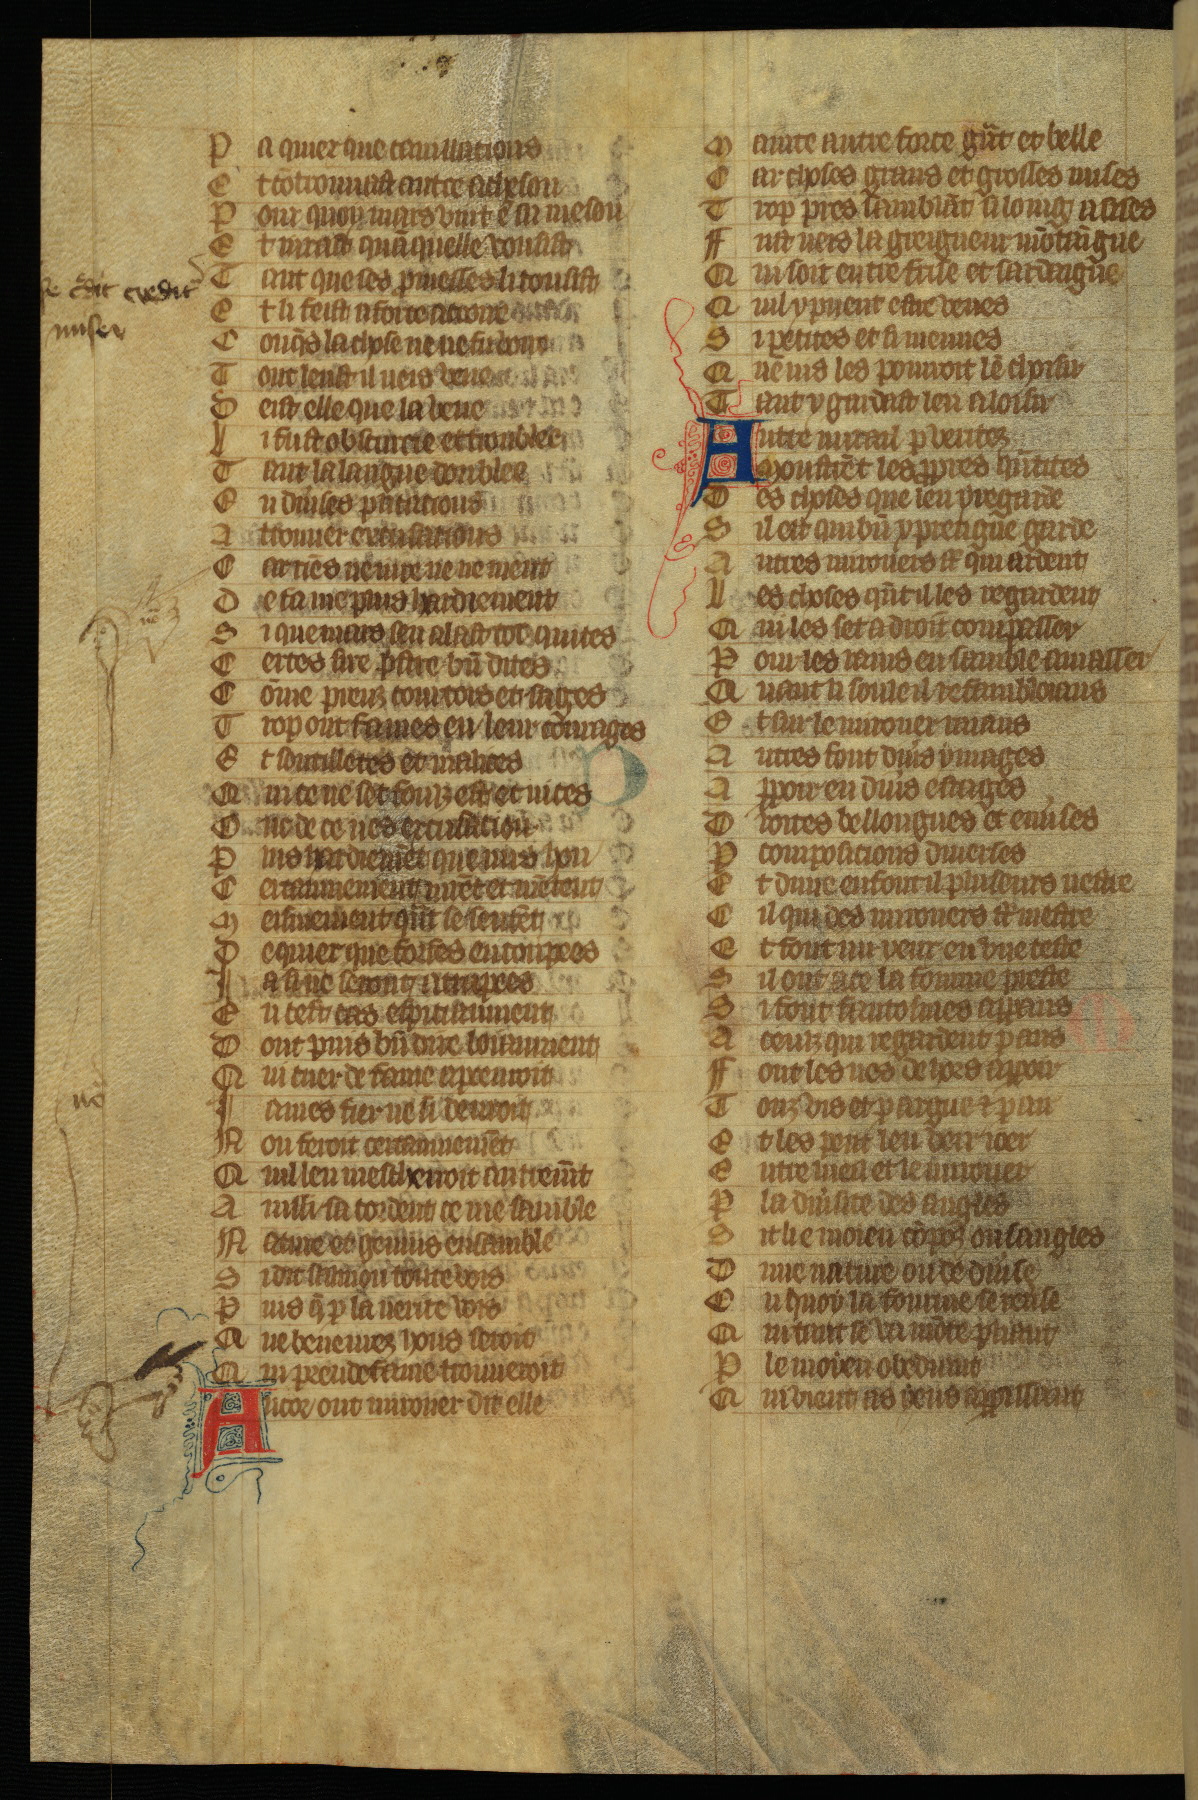 P a quier que cauillations
E t cōtrouuast autre acheson
P our quoy mars vint ē sa meson
E t iurast quā quelle vousist
T ant que ses pmesses li tousist
E t li feist a force acroire
C onq̄s la chose ne ne fu voire
T out leust il veis vene
D eist elle que la veue
L i fust obscurcie et troublee
T ant la langue doublee
E n diuses pliacions
A trouuer excusacions
C ar riēs ne iure ne ne ment
D e fame plus hardiement
S i que mars sen alast toz quites
C ertes sire pstre bn̄ dites
C ōme preuz courtois et sages
T rop ont fames en leur courages
E t soutilletes et malices
Q ui ce ne set fouz est et nices
O nc de ce nes excusacion
P lus hardiemēt que nus hon
C ertainnement iurēt et mētent
M eismement qn̄t se sentēt
D e quier que forfes encoupees
J a si ne seront atrapees
E n cest cas espiciaument
D ont puis bn̄ dire loiaument
Q ui cuer de fame apceuroit
J ames fier ne si deuroit
N ou feroit certainnemēt
Q uil len mescherroit autremēt
A insi sacordent ce me samble
N ature et genius ensamble
S i dit salemon toute vois
P uis q̄ p la verite vois
Q ue beneurez hons seroit
Q ui preudefame trouueroit
A ncor ont mirouer dit elle
se c̄dit credit
miser
nō
nō
M ainte autre force gn̄t et belle
C ar choses grans et grosses mises
T rop pres samblāt si loing assises
F ust neis la greigneur mōtaigne
Q ui soit entre frise et sardaigne
Q uil y pueent estre veues
S i petites et si menues
Q uēuis les pourroit lē choisir
T ant y gardast len a loisir
A utre mirail p veritez
M oustrēt les ppres quātites
D es choses que len y regarde
S il est qui bn̄ y preigne garde
A utres mirouers st̄ qui ardent
L es choses qn̄t il les regardent
Q ui les set a droit compasser
P our les rais ensamble amasser
Q uant li souleil reflamboians
E t sur le mirouer raians
A utres font diuˢs ymages
A pparoir en diuˢs estages
D roites bellongues et enuˢses
P composicions diuerses
E t dune en font il pluseurs nestre
C il qui des mirouers st̄ mestre
E t font iiij yeux en vne teste
S il ont a ce la fourme preste
S i font fantosmes apparans
A ceulz qui regardent p ans
F ont les nes dehors apparoir
T ouz vis et p aigue & p air
E t les peut len veir ioer
E ntre lueil et le mirouer
P la diuˢsite des angles
S it li e moien cōpoz ou sangles
D une nature ou de diuˢse
E n quoy la fourme se reuse
Q ui tant se va mōtepliant
P le moien obediant
Q ui vient as yeus apparissant